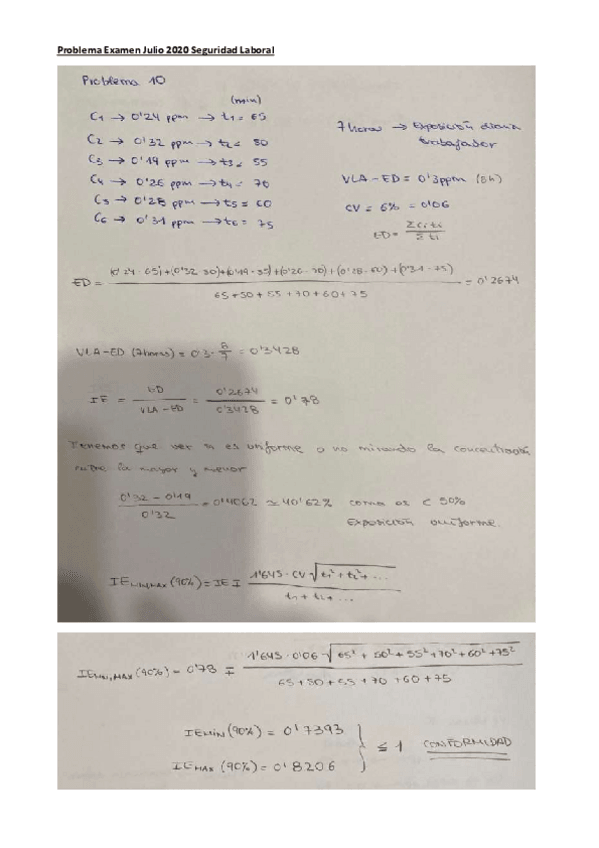 Problema Examen Julio 2020 Seguridad Laboral
Problema 10
(min)
C1 → 0'24 ppm → t1 = 65
C2 → 0'32 ppm → t2 = 50
C3 → 0'19 ppm → t3 = 55
C4 → 0'26 ppm → t4 = 70
C5 → 0'28 ppm → t5 = 60
C6 → 0'31 ppm → t6 = 75
7 horas → Exposición diaria
trabajador
VLA-ED = 0'3ppm (8h)
CV = 6% = 0'06
ED = Σci·ti / Σti
ED = (0'24·65)+(0'32·50)+(0'19·55)+(0'26·70)+(0'28·60)+(0'31·75) / 65+50+55+70+60+75 = 0'2674
VLA-ED (7horas) = 0'3·8/7 = 0'3428
IE = ED / VLA-ED = 0'2674 / 0'3428 = 0'78
Tenemos que ver si es uniforme o no mirando la concentración
entre la mayor y menor
0'32 - 0'19 / 0'32 = 0'4062 ≃ 40'62% como es < 50%
Exposición uniforme.
IE MIN,MAX (90%) = IE ∓ 1'645·CV √t1²+t2²+... / t1+t2+...
IE MIN,MAX (90%) = 0'78 ∓ 1'645·0'06 √65²+50²+55²+70²+60²+75² / 65+50+55+70+60+75
IE MIN (90%) = 0'7393
IE MAX (90%) = 0'8206
} ≤ 1 CONFORMIDAD